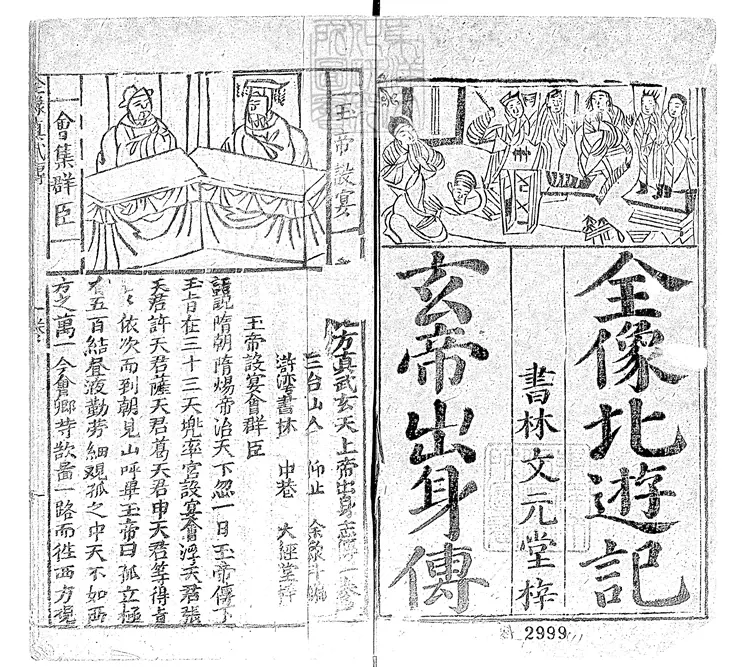 全像北遊記
書林文元堂梓
玄帝出身傳
2999
玉帝設宴
會集群臣
方真武玄天上帝出身志傳一卷
三台山人 仰止 余象斗編
書林 中巷 大經堂梓
玉帝設宴會群臣
話說隋朝隋煬帝治天下忽一日玉帝傳下
玉旨在三十三天兜率宮設宴會淨天君張
天君許天君薩天君葛天君申天君等得旨
依次而到朝見山呼畢玉帝曰孤立極
五百結昼夜勤劳細观孤之中天不如西
方之萬一今會卿等歆啚一路而徃西方境